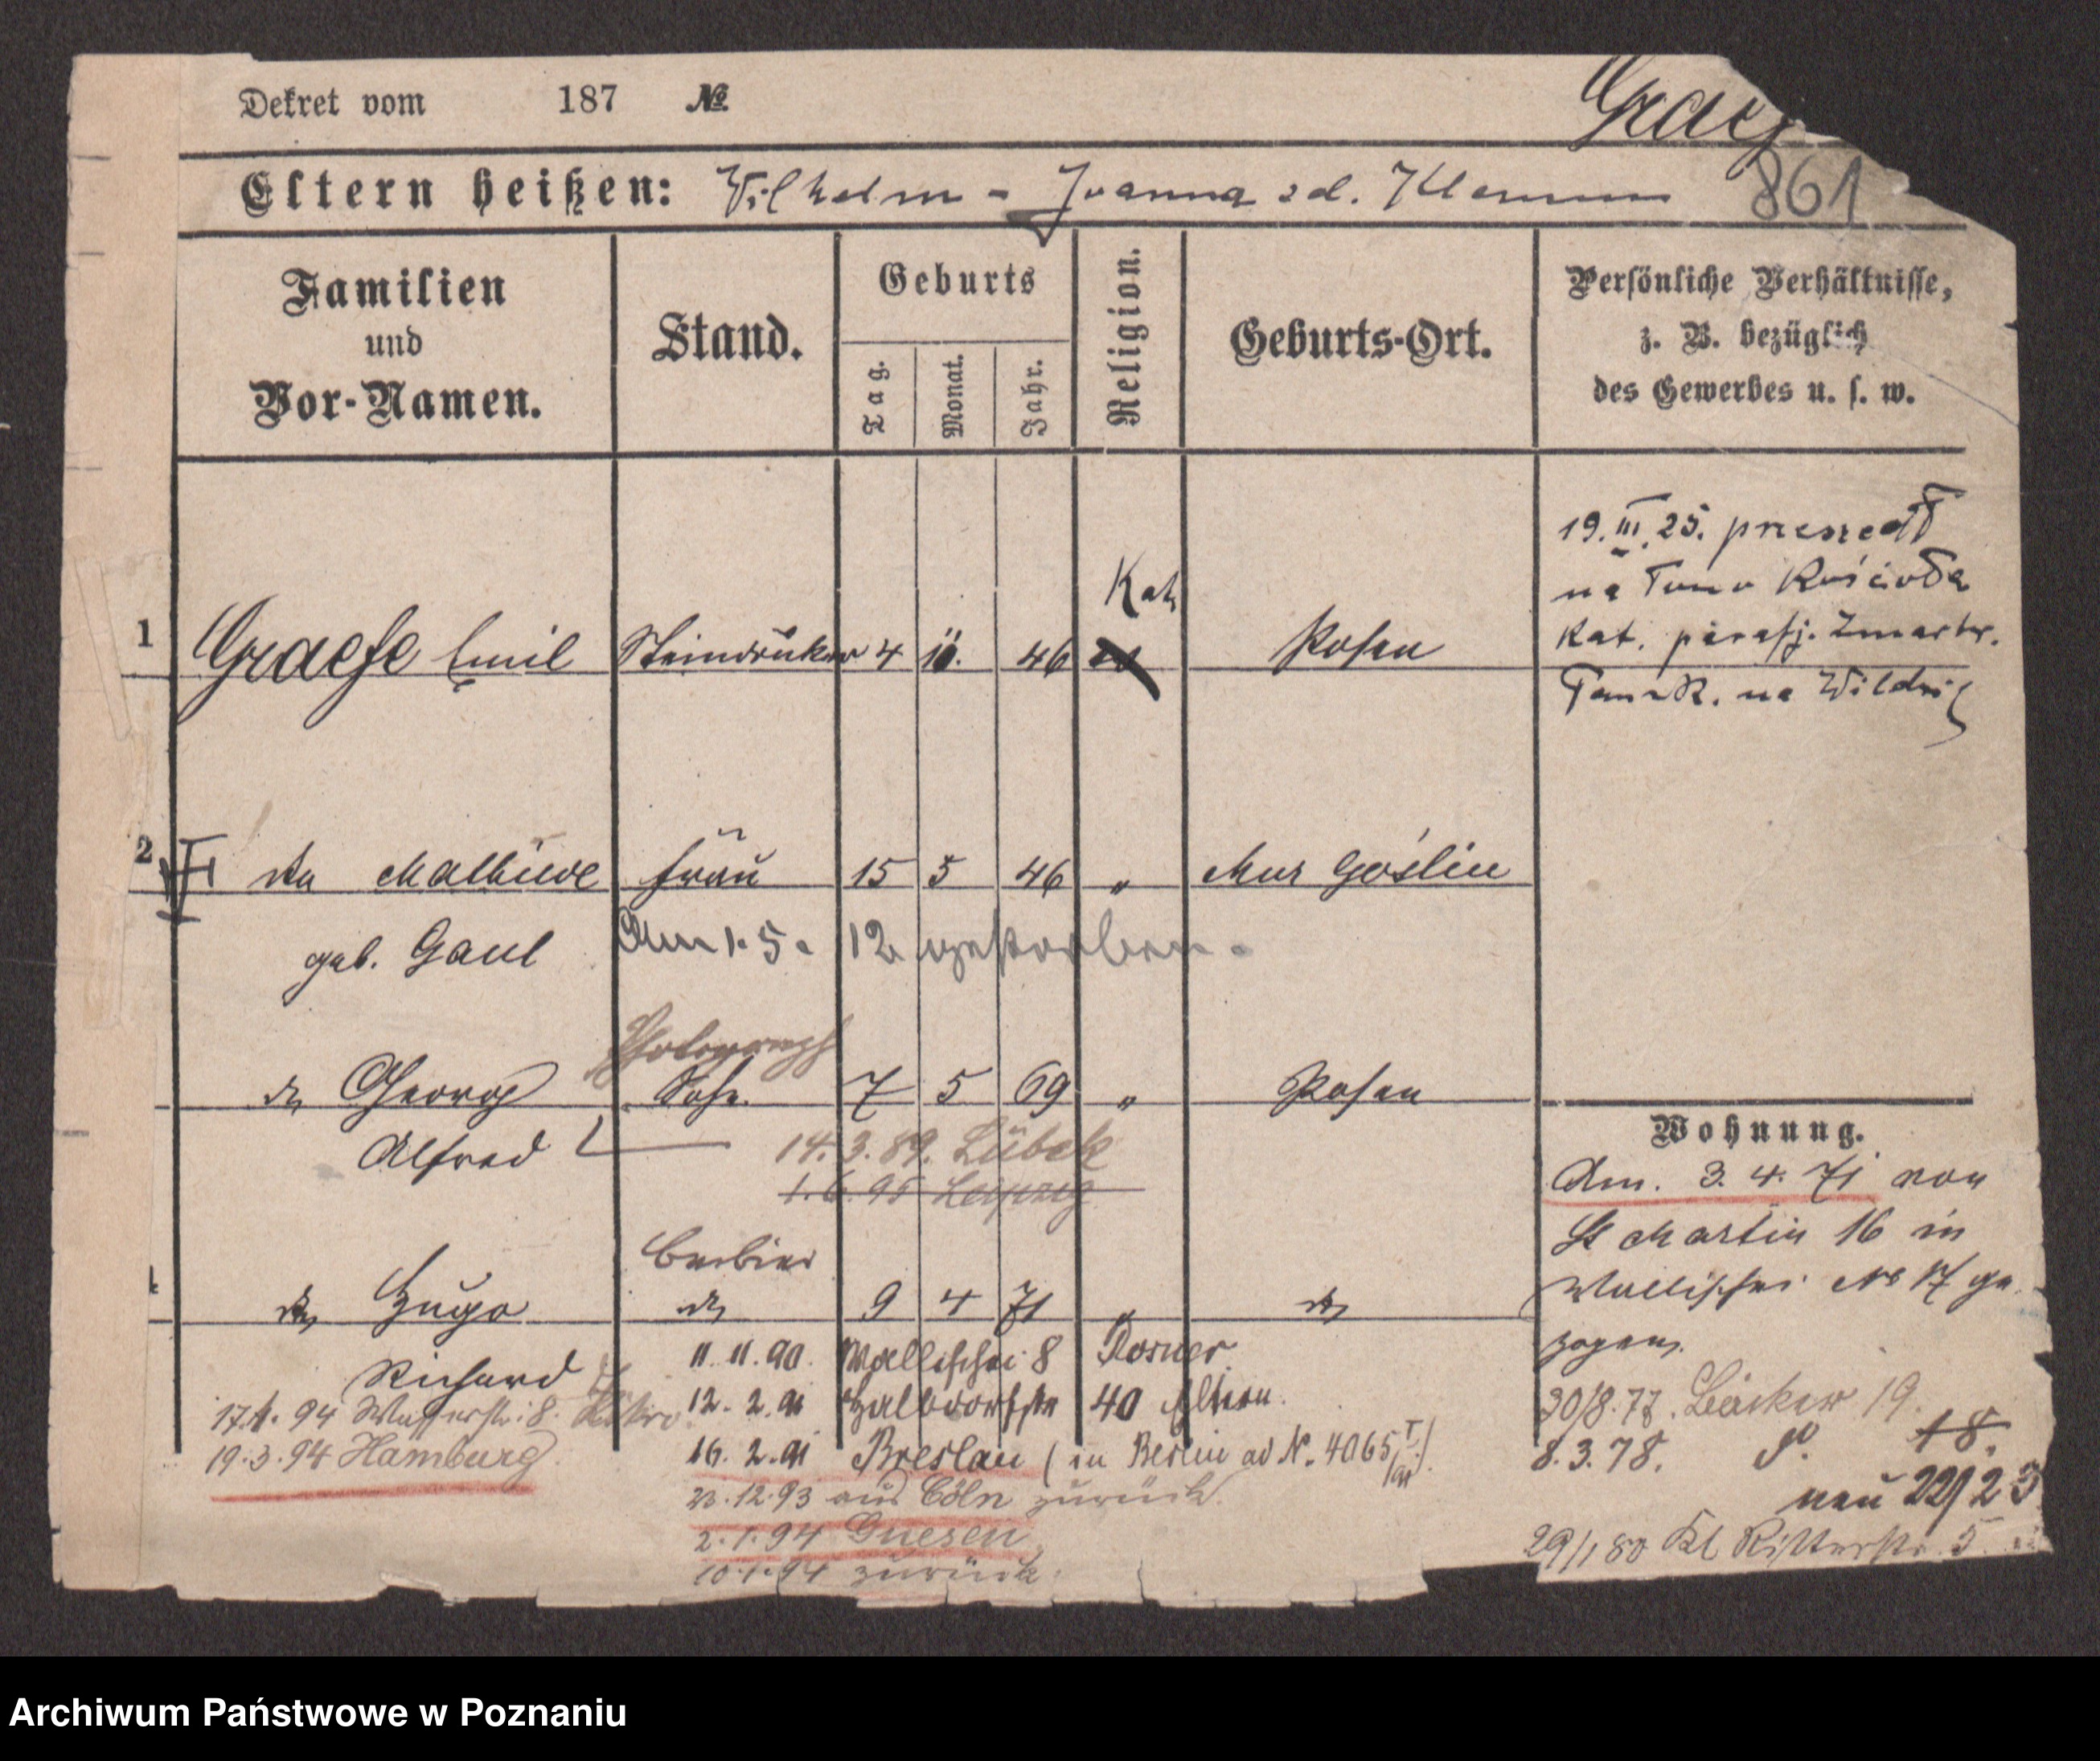 Dekret vom 187 №
Graef
Eltern heißen: Wilhelm - Joanna
861
Familien und Vor-Namen.
Stand.
Geburts
Tag.
Monat.
Jahr.
Religion.
Geburts-Ort.
Persönliche Verhältnisse,
z. B. bezüglich
des Gewerbes u. s. w.
1 Graefe Emil Steindrucker 4 10. 46 Kath Posen
19. III. 25. przeszedł
na łono Kościoła
Kat. parafj. Zmartw.
Pańsk. na Wildzie
2 Frau 15 5 46 " Mur Goślin
geb. Gaul Am 1. 5. 12 gestorben.
Photograph
George Sohn 7 5 69 " Posen
Alfred 14. 3. 89. Lübek
1. 6. 95 Leipzig
Wohnung.
Am. 3. 4. 71 von
St Martin 16 in
Wallischei No 17 ge
zogen.
Barbier
Hugo 9 4 71 "
Richard
11. 11. 90. Wallischei 8
12. 2. 91 Halbdorfstr 40 Eltern.
16. 2. 91 Breslau (in Berlin ad N. 4065
23. 12. 93 aus Cöln zurück.
2. 1. 94 Gnesen
10. 1. 94 zurück.
17.1. 94 Wasserstr. 8.
19. 3. 94 Hamburg.
30/8. 77. 19.
8. 3. 78. 18.
neu 22/23
29/1 80 Kl Ritterstr. 5
Archiwum Państwowe w Poznaniu